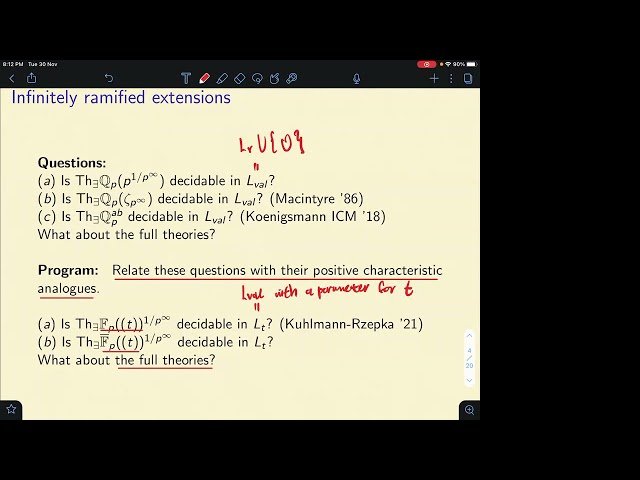 8:12 PM Tue 30 Nov
90%
Infinitely ramified extensions
Lr ∪ {O}
Questions:
=
(a) Is Th∃ℚp(p^{1/p^∞}) decidable in Lval?
(b) Is Th∃ℚp(ζp^∞) decidable in Lval? (Macintyre '86)
(c) Is Th∃ℚp^{ab} decidable in Lval? (Koenigsmann ICM '18)
What about the full theories?
Program: Relate these questions with their positive characteristic
analogues.
Lval with a parameter for t
=
(a) Is Th∃𝔽p((t))^{1/p^∞} decidable in Lt? (Kuhlmann-Rzepka '21)
(b) Is Th∃𝔽̄p((t))^{1/p^∞} decidable in Lt?
What about the full theories?
4
/
20